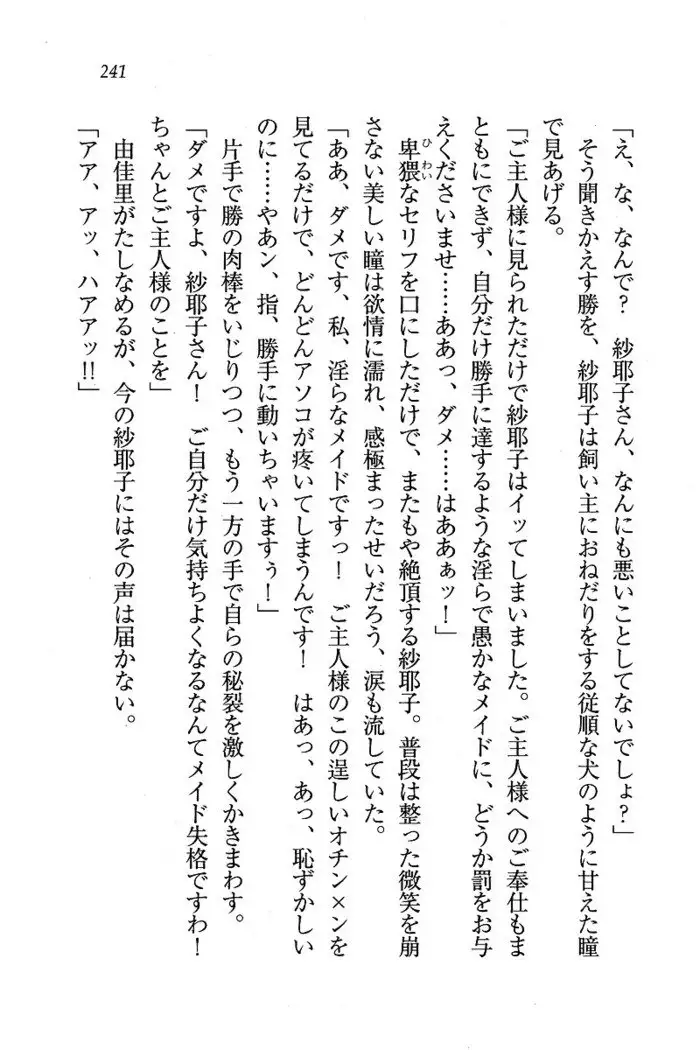 241
「え、な、なんで？　紗耶子さん、なんにも悪いことしてないでしょ？」
そう聞きかえす勝を、紗耶子は飼い主におねだりをする従順な犬のように甘えた瞳
で見あげる。
「ご主人様に見られただけで紗耶子はイッてしまいました。ご主人様へのご奉仕もま
ともにできず、自分だけ勝手に達するような淫らで愚かなメイドに、どうか罰をお与
えくださいませ……ああっ、ダメ……はああぁッ！」
卑猥なセリフを口にしただけで、またもや絶頂する紗耶子。普段は整った微笑を崩
ひ わい
さない美しい瞳は欲情に濡れ、感極まったせいだろう、涙も流していた。
「ああ、ダメです、私、淫らなメイドですっ！　ご主人様のこの逞しいオチン×ンを
見てるだけで、どんどんアソコが疼いてしまうんです！　はあっ、あっ、恥ずかしい
のに……やあン、指、勝手に動いちゃいますぅ！」
片手で勝の肉棒をいじりつつ、もう一方の手で自らの秘裂を激しくかきまわす。
「ダメですよ、紗耶子さん！　ご自分だけ気持ちよくなるなんてメイド失格ですわ！
ちゃんとご主人様のことを」
由佳里がたしなめるが、今の紗耶子にはその声は届かない。
「アア、アッ、ハアアッ!!」